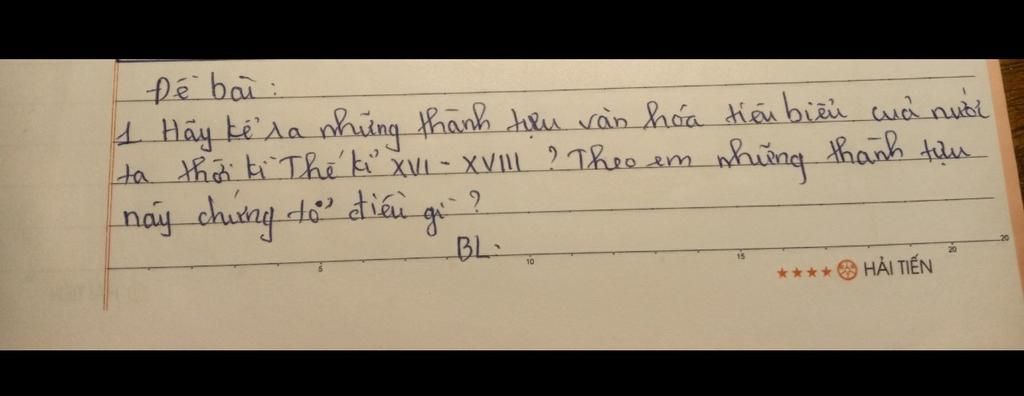 Đề bài:
1 Hãy kể ra những thành tựu văn hóa tiêu biểu cuả nước
ta thời kì Thế kỉ XVI - XVIII ? Theo em những thành tựu
này chứng tỏ điều gì ?
BL:
5 10 15 20 20
★★★★ HẢI TIẾN